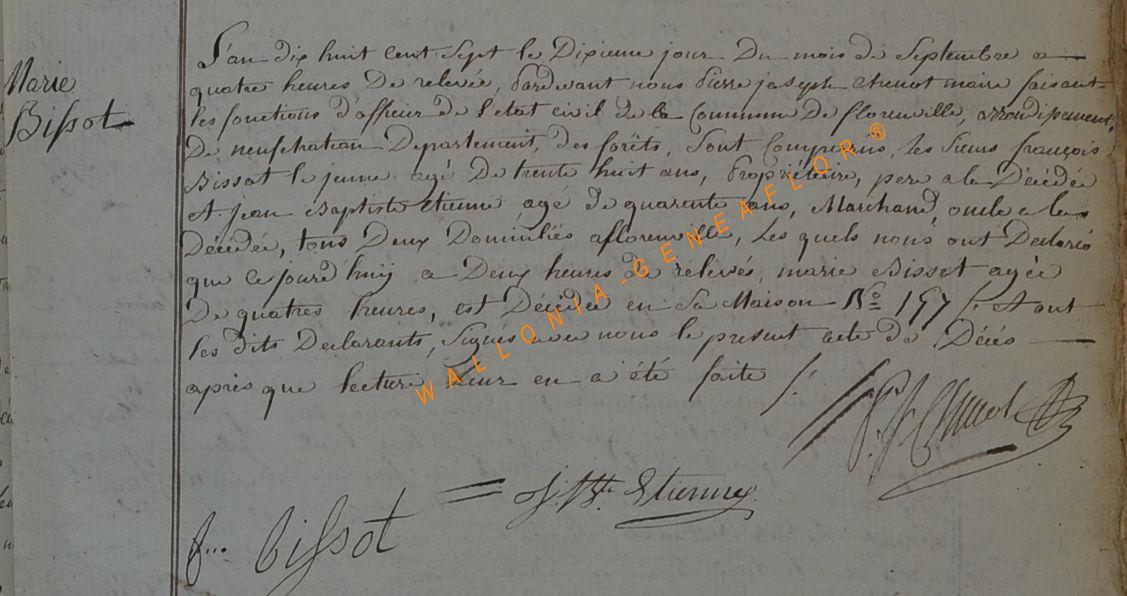 Marie
Bissot
L'an dix huit cent Sept le Dixieme jour Du mois de Septembre a
quatre heures De relevée, Pardevant nous Pierre joseph maire faisant
les fonctions d'officier de l'état civil de la Commune De florenville, arrondissement,
De neufchateau Departement, des forêts, Sont Comparus, les Sieurs françois
Bissot le jeune agé De trente huit ans, Propriétaire, pere a la Décédée
Et jean Baptiste etienne agé de quarente ans, Marchand, oncle a la
Decédée, tous Deux Domiciliés a florenville, Les quels nous ont Declaré
que cejourd'huy a Deux heures de relevés, marie Bissot agée
De quatres heures, est Décédée en Sa Maison N° 157 /. Et ont
les dits Declarants, Signés avec nous le present acte de Décés
après que lecture Leur en a été faite /.
J. Bte. Etienne
f... Bissot
WALLONIA-GENEAFLOR®